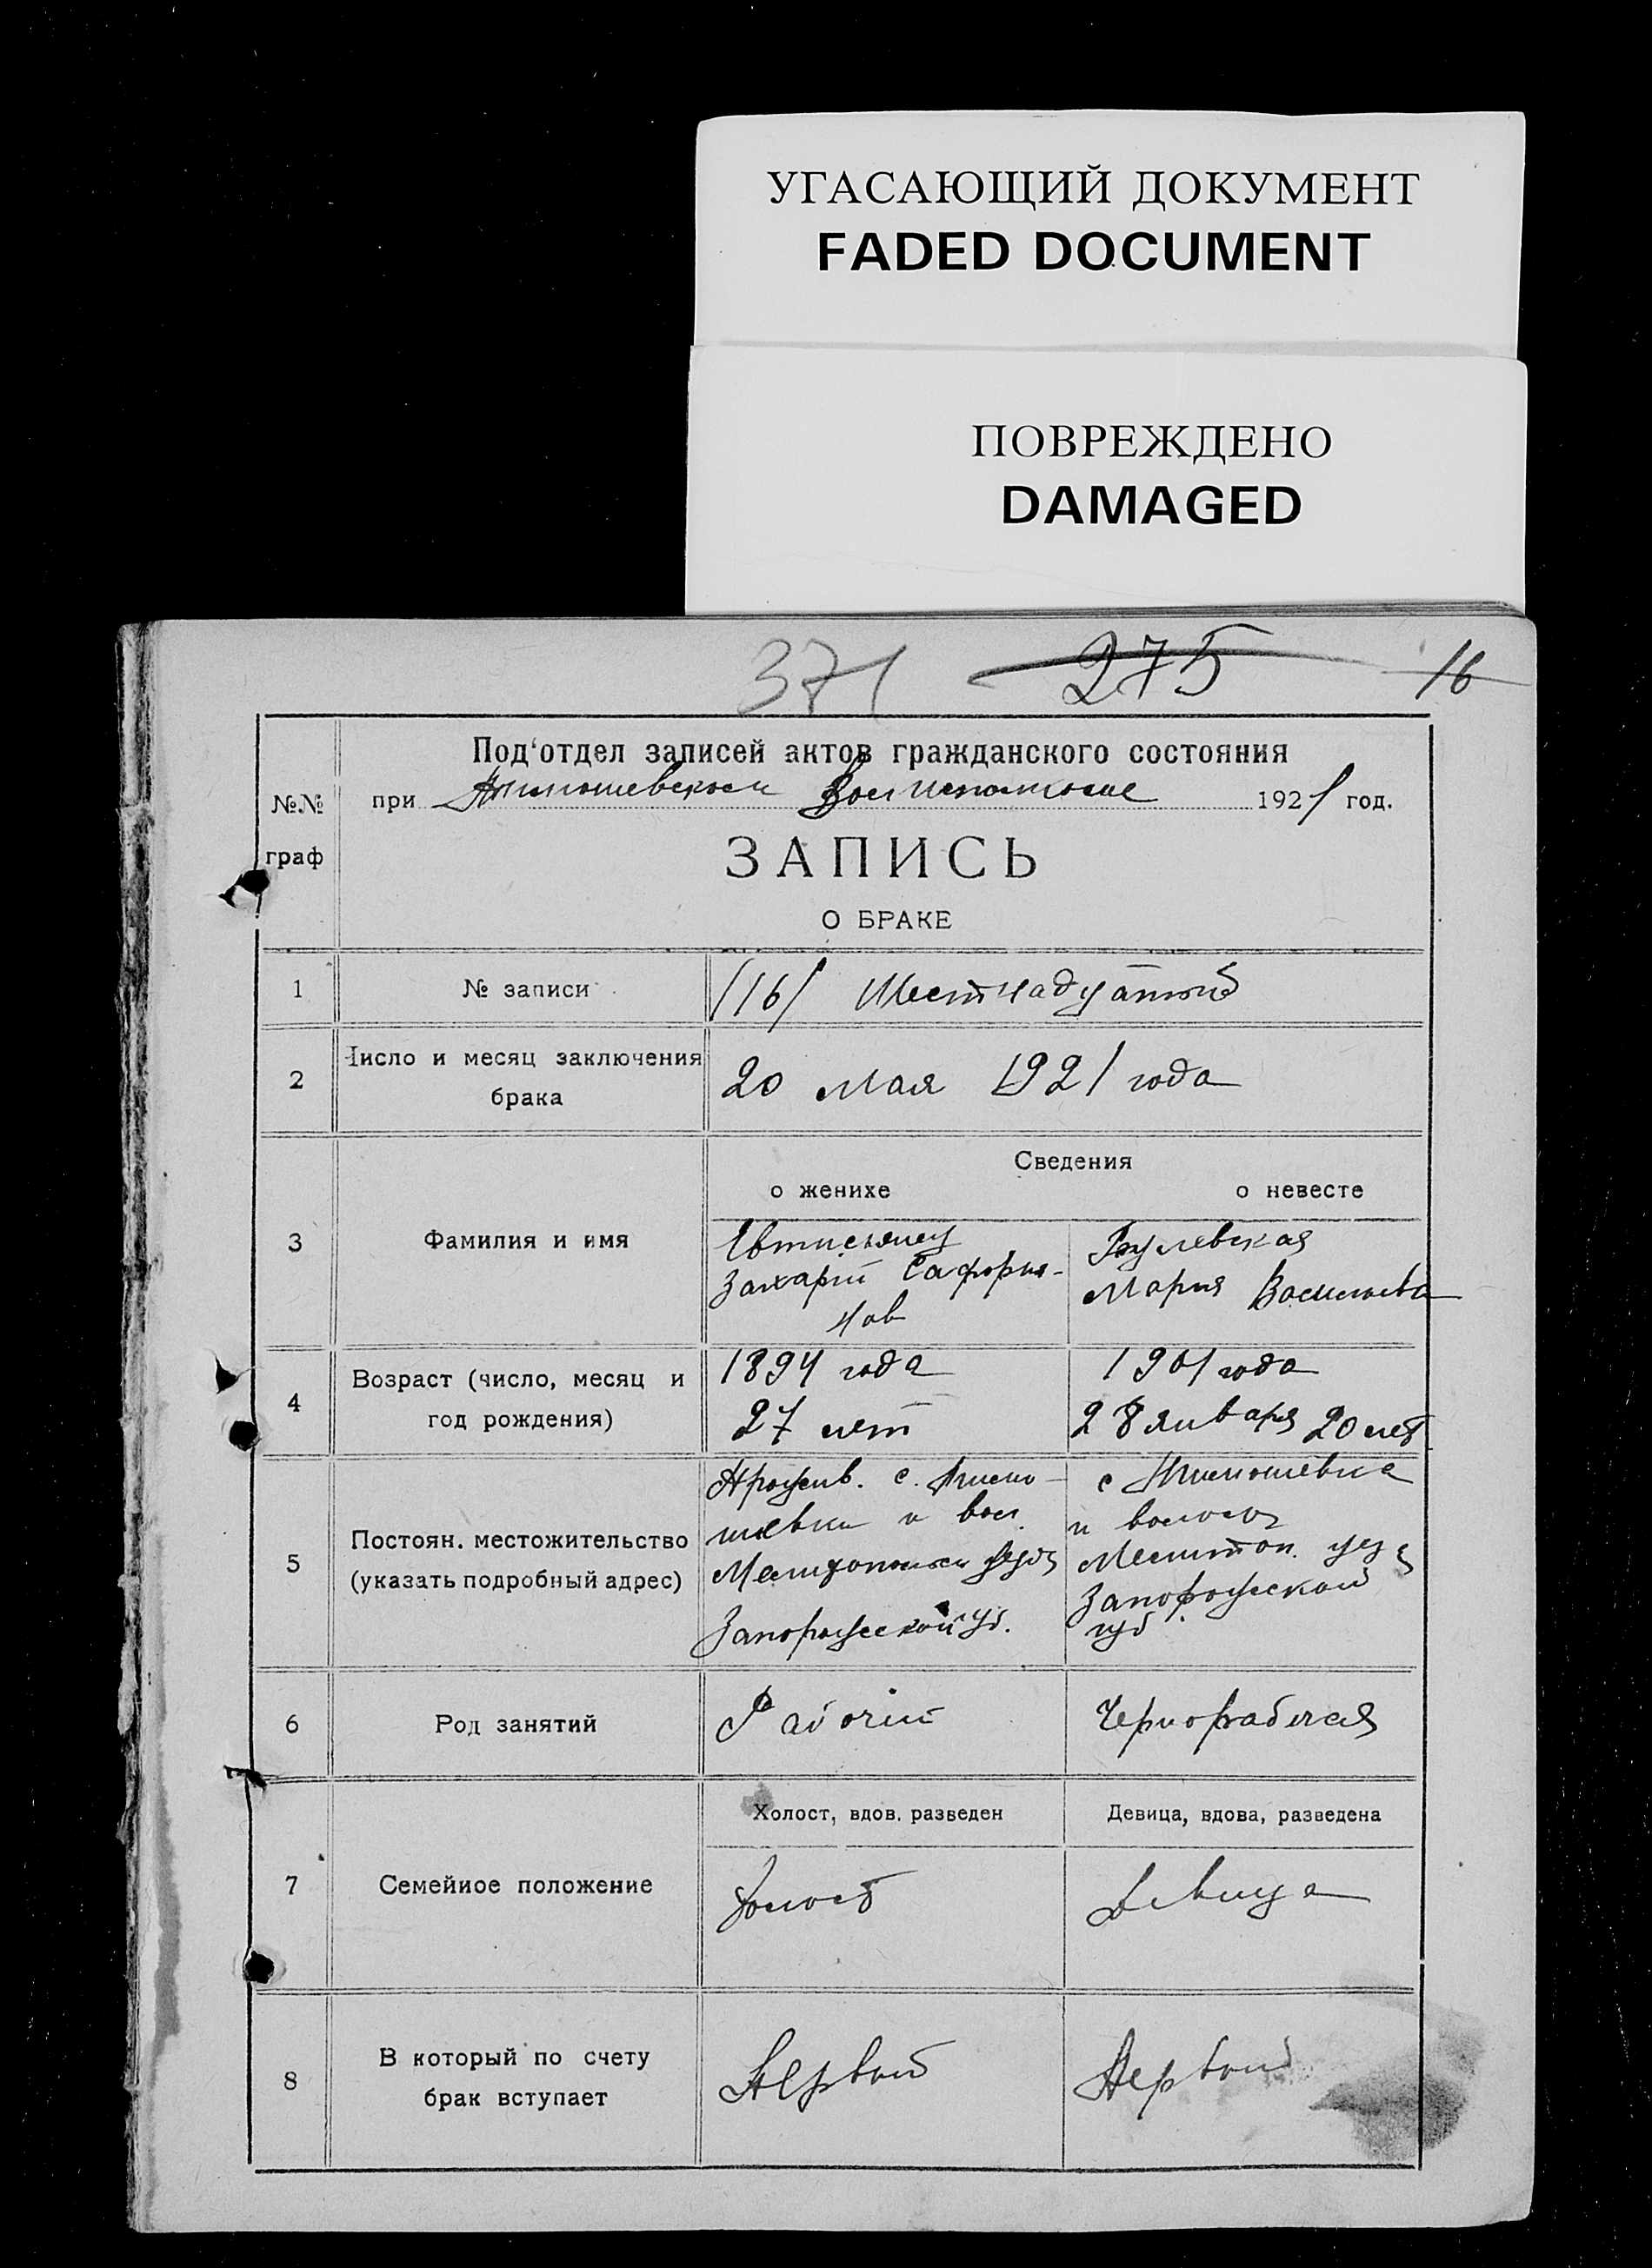 УГАСАЮЩИЙ ДОКУМЕНТ
FADED DOCUMENT
ПОВРЕЖДЕНО
DAMAGED
371 275 16
Под'отдел записей актов гражданского состояния
№№ при 1921 год.
граф
ЗАПИСЬ
О БРАКЕ
1 № записи /16/ Шестнадцатый
2 Число и месяц заключения
брака
20 мая 1921 года
Сведения
о женихе о невесте
3 Фамилия и имя
Захарий Сафроно-
нов
Мария Васильева
4 Возраст (число, месяц и
год рождения)
1894 года
27 лет
1901 года
28 января 20 лет
5 Постоян. местожительство
(указать подробный адрес)
Прожив. с.
и вол.
Запорожской губ.
с
и волости
Мелитоп. уез
Запорожской
губ
6 Род занятий Рабочий Чернорабочая
Холост, вдов. разведен Девица, вдова, разведена
7 Семейное положение Холост Девица
8 В который по счету
брак вступает
Первый Первый